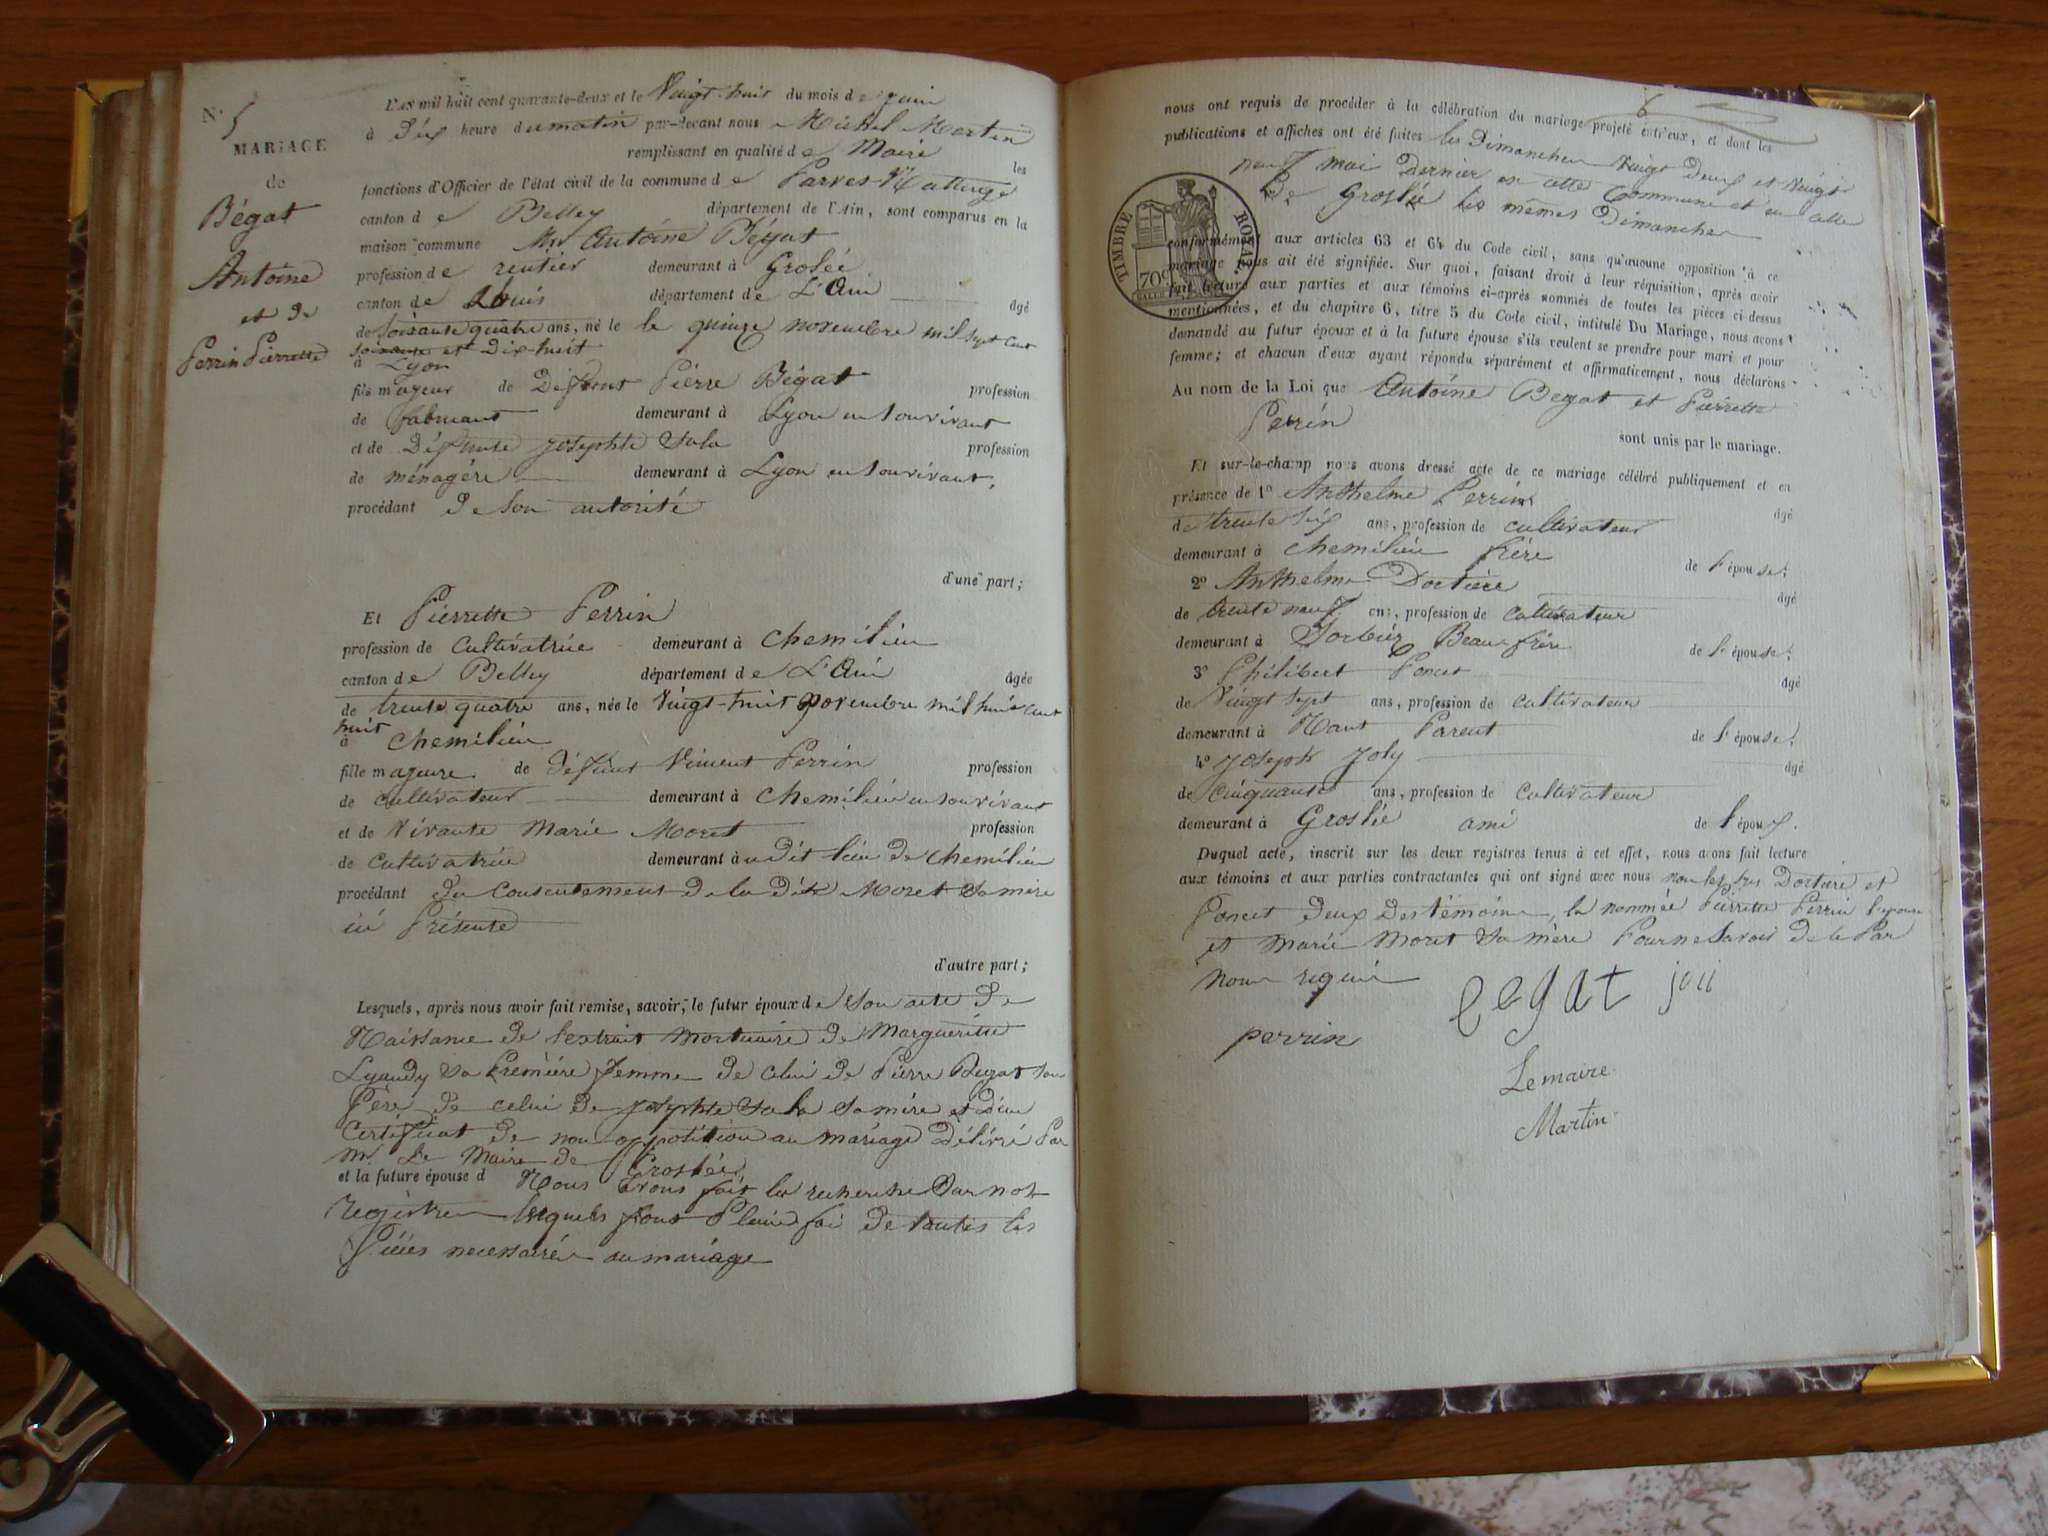 N° 5
MARIAGE
de
Bégat
Antoine
et de
Perrin Pierrette
L'an mil huit cent quarante-deux et le Vingt-huit du mois de juin
à dix heure du matin par-devant nous Michel Martin
remplissant en qualité de Maire les
fonctions d'Officier de l'état civil de la commune de Parves Nattage
canton de Belley département de l'Ain, sont comparus en la
maison commune Mr Antoine Bégat
profession de rentier demeurant à Groslée
canton de Lhuis département de L'Ain âgé
de soixante quatre ans, né le le quinze novembre mil sept cent
soixante et Dix-huit
à Lyon
fils majeur de Défunt Pierre Bégat profession
de fabricant demeurant à Lyon en Son vivant
et de Défunte josephte Sala profession
de ménagère demeurant à Lyon en Son vivant,
procédant de Son autorité
d'une part;
Et Pierrette Perrin
profession de Cultivatrice demeurant à Chemilieu
canton de Belley département de L'Ain âgée
de trente quatre ans, née le Vingt-huit Novembre mil huit cent
huit
à Chemilieu
fille majeure de défunt Vincent Perrin profession
de cultivateur demeurant à Chemilieu en Son vivant
et de Vivante Marie Moret profession
de cultivatrice demeurant à u dit lieu de Chemilieu
procédant du Consentement de la dite Moret Sa mère
ici Présente
d'autre part;
Lesquels, après nous avoir fait remise, savoir, le futur époux de Son acte de
Naissance de l'extrait mortuaire de Margueritte
Lyaudy Sa Première femme de celui de Pierre Begat Son
Père de celui de josephte Sala Sa mère et D'un
Certificat de non opposition au mariage Délivré Par
Mr Le Maire de Groslée
et la future épouse d Nous avons fait la recherche Sur nos
Registres lesquels font Pleine foi de toutes les
Pièces necessaires au mariage
6
nous ont requis de procéder à la célébration du mariage projeté entr'eux, et dont les
publications et affiches ont été faites les Dimanches Vingt deux et Vingt
neuf mai Dernier en cette Commune et en celle
De Groslée les mêmes Dimanches
TIMBRE ROYAL
70c
conformément aux articles 63 et 64 du Code civil, sans qu'aucune opposition à ce
mariage nous ait été signifiée. Sur quoi, faisant droit à leur réquisition, après avoir
fait lecture aux parties et aux témoins ci-après nommés de toutes les pièces ci-dessus
mentionnées, et du chapitre 6, titre 5 du Code civil, intitulé Du Mariage, nous avons
demandé au futur époux et à la future épouse s'ils veulent se prendre pour mari et pour
femme; et chacun d'eux ayant répondu séparément et affirmativement, nous déclarons
Au nom de la Loi que Antoine Begat et Pierrette
Perrin
sont unis par le mariage.
Et sur-le-champ nous avons dressé acte de ce mariage célébré publiquement et en
présence de 1° Anthelme Perrin âgé
de trente Six ans, profession de cultivateur
demeurant à Chemilieu frère de l'épouse;
2° Anthelme Dortière âgé
de trente neuf ans, profession de cultivateur
demeurant à Sorbiez Beau frère de l'épouse;
3° Philibert Poncet âgé
de Vingt Sept ans, profession de cultivateur
demeurant à Nant Parent de l'épouse;
4° Joseph Joly âgé
de Cinquante ans, profession de Cultivateur
demeurant à Groslée ami de l'époux.
Duquel acte, inscrit sur les deux registres tenus à cet effet, nous avons fait lecture
aux témoins et aux parties contractantes qui ont signé avec nous non les Srs Dortière et
Poncet deux des témoins, la nommée Pierrette Perrin l'epouse
et Marie Moret Sa mère Pour ne Savoir de le Par
Nous requis
Begat joli
perrin
Le maire
Martin